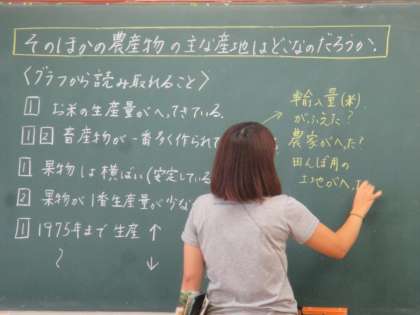 そのほかの農産物の主な産地はどこなのだろうか。
〈グラフから読み取れること〉
1 お米の生産量がへってきている。
1 2 畜産物が一番多く作られて
1 果物は横ばい(安定している
2 果物が1番生産量が少な
1 1975年まで生産 ↑
〜 ↓
輸入量(米)
がふえた?
農家がへった?
田んぼ用の
土地がへっ